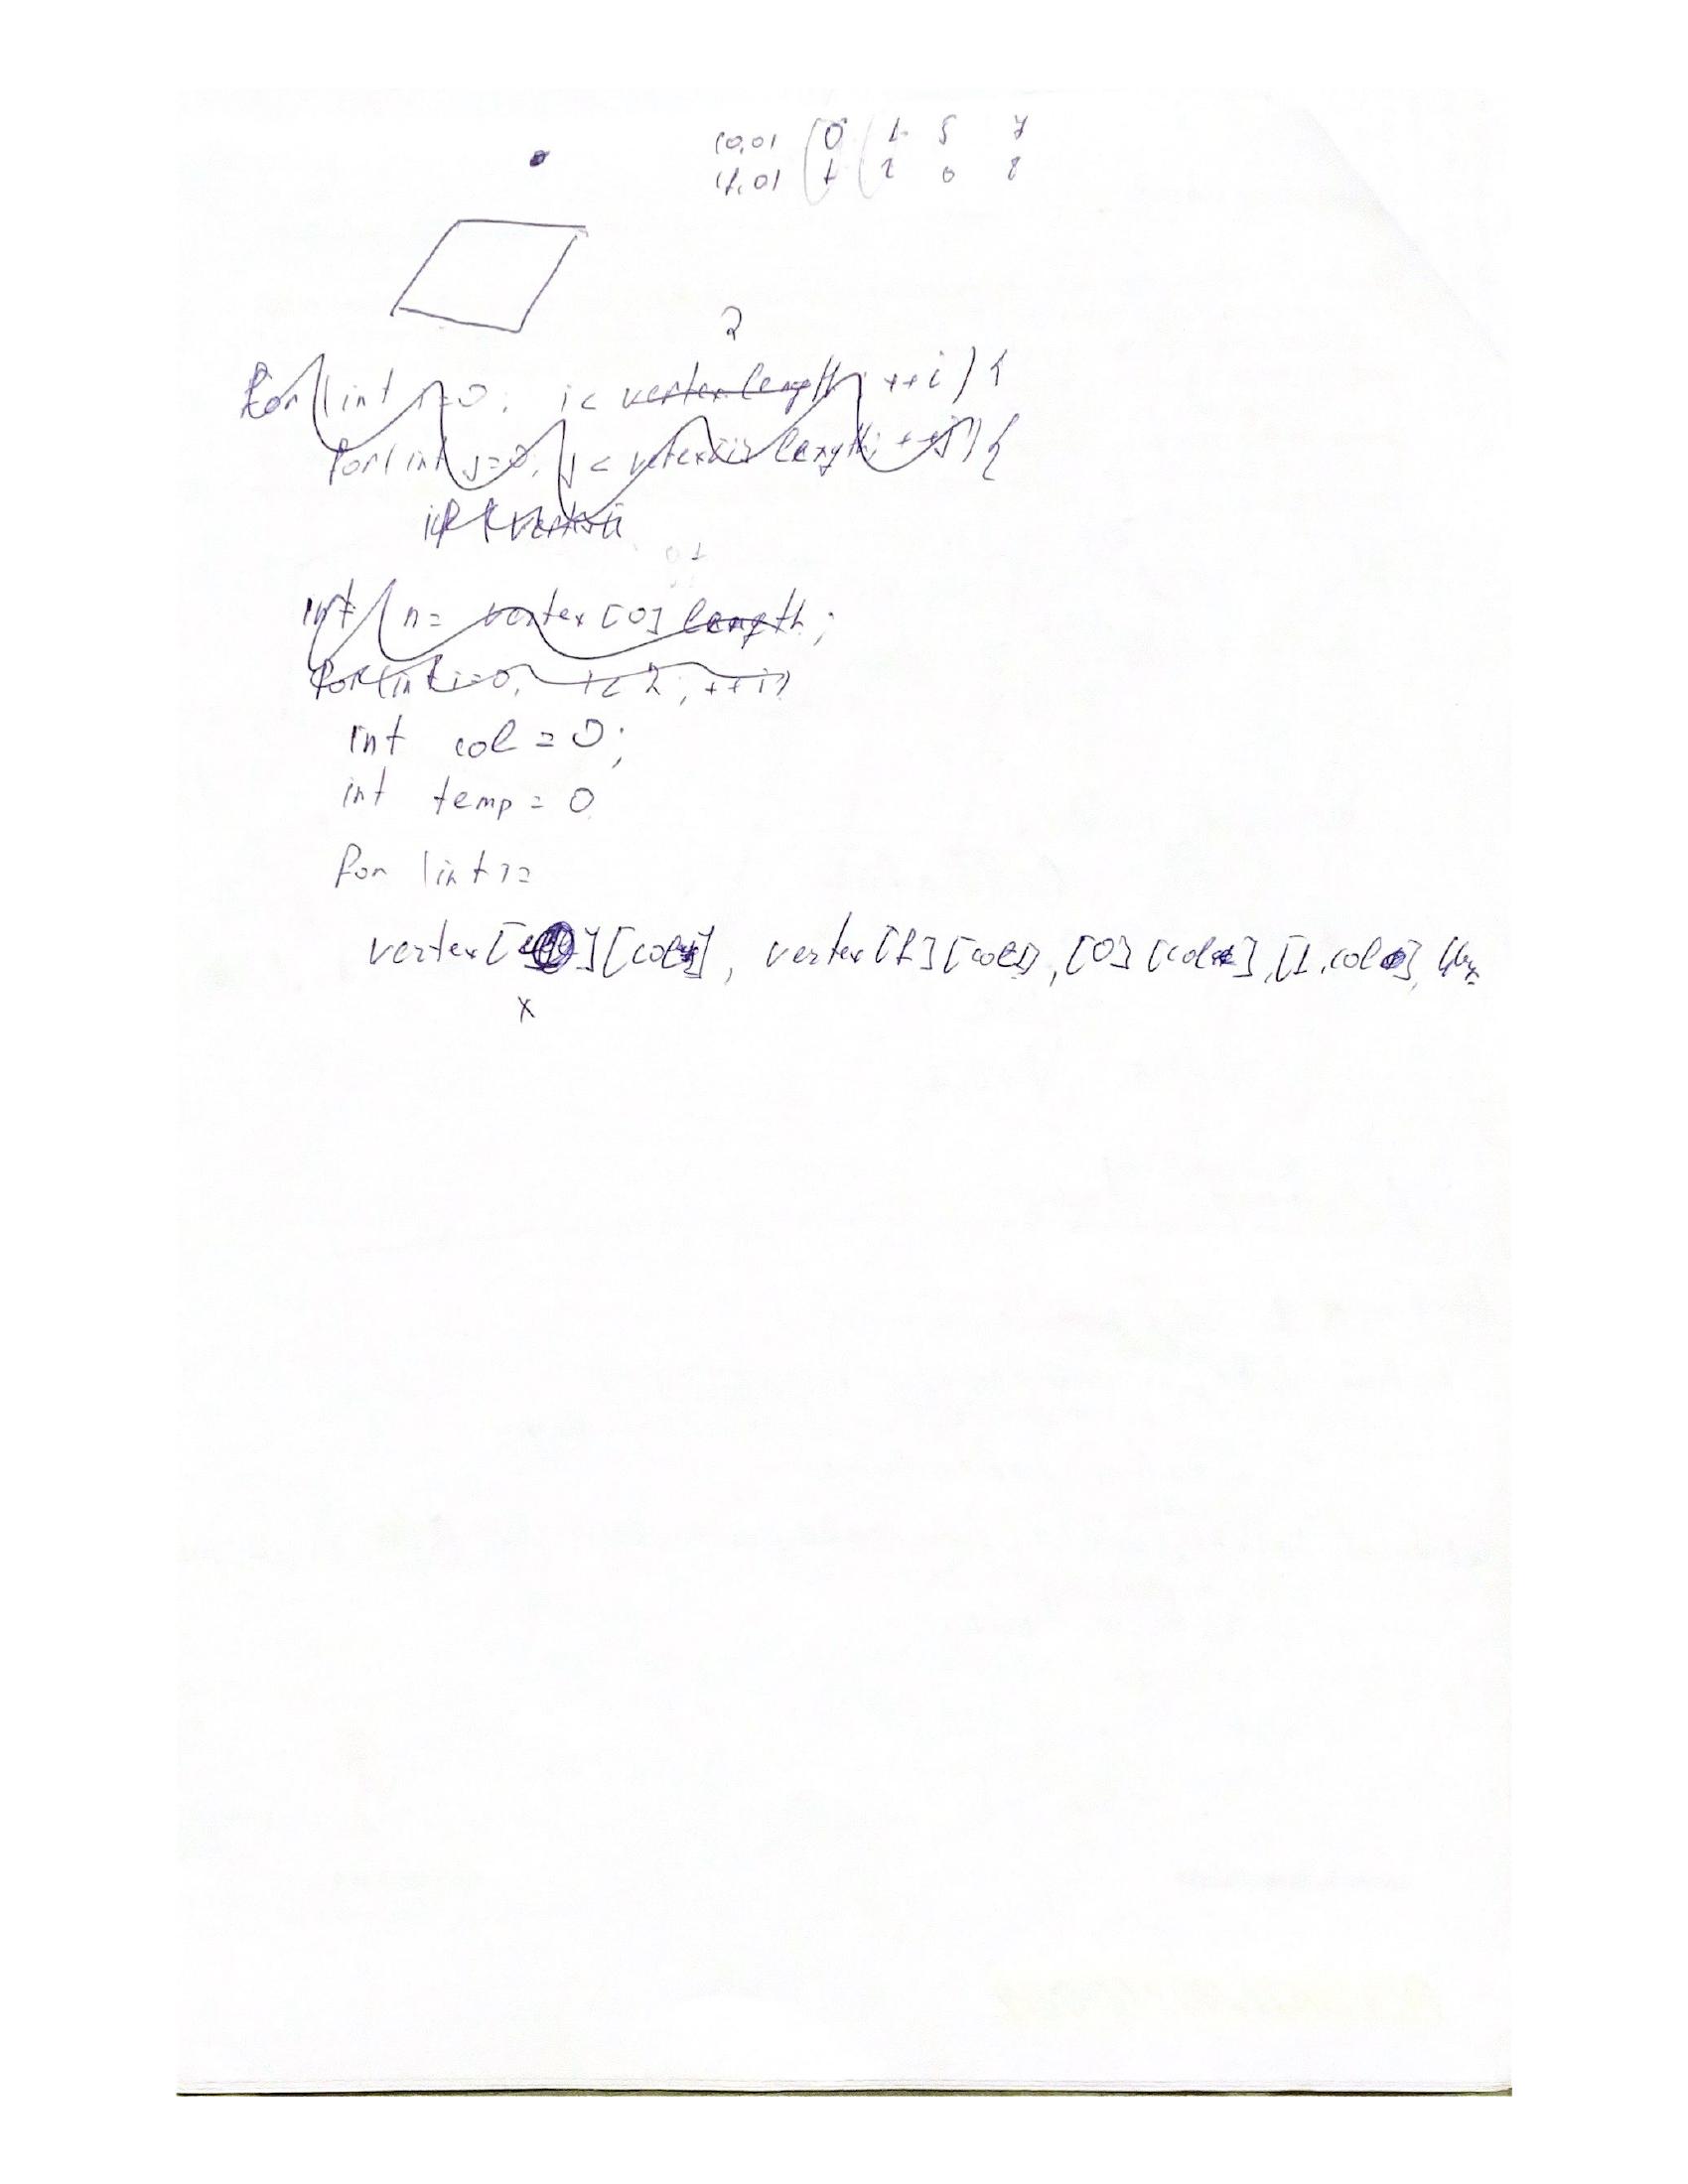 (0,0) 0 1 5 7
(1,0) 1 2 6 8
2
for (int i=0; i< vertex length; ++i) {
for (int j=0; j< vertex[i] length; ++j) {
if (
int n= vertex [0] length;
for (int i=0; i< 2; ++i)
int col = 0;
int temp = 0
for (int i=
vertex [ ][col], vertex [1][col], [0] [col], [1, col],
x